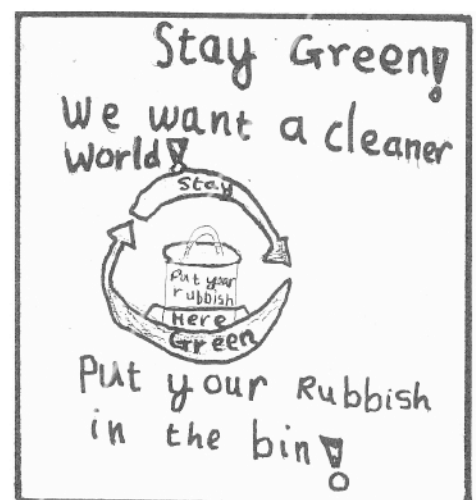 Stay Green!
We want a cleaner
World!
Stay
Put your
rubbish
Here
Green
Put your Rubbish
in the bin!